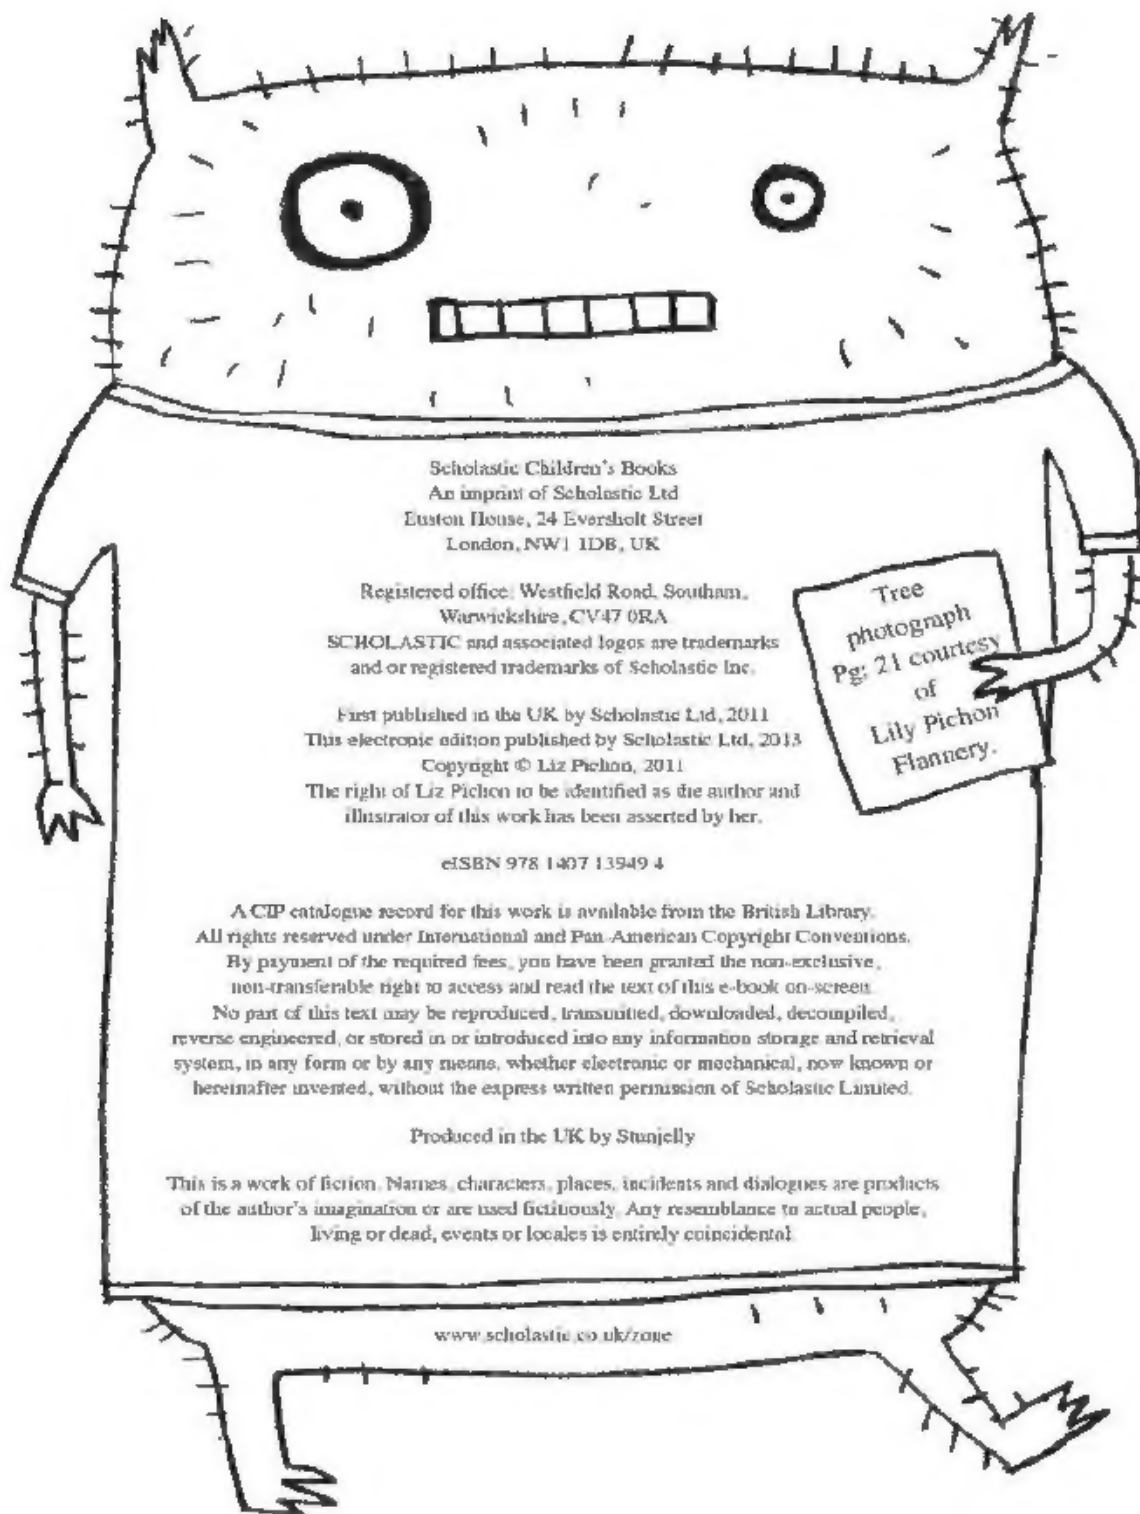 Scholastic Children's Books
An imprint of Scholastic Ltd
Euston House, 24 Eversholt Street
London, NW1 1DB, UK
Registered office: Westfield Road, Southam,
Warwickshire, CV47 0RA
SCHOLASTIC and associated logos are trademarks
and or registered trademarks of Scholastic Inc.
First published in the UK by Scholastic Ltd, 2011
This electronic edition published by Scholastic Ltd, 2013
Copyright © Liz Pichon, 2011
The right of Liz Pichon to be identified as the author and
illustrator of this work has been asserted by her.
Tree
photograph
Pg: 21 courtesy
of
Lily Pichon
Flannery.
eISBN 978 1407 13949 4
A CIP catalogue record for this work is available from the British Library.
All rights reserved under International and Pan-American Copyright Conventions.
By payment of the required fees, you have been granted the non-exclusive,
non-transferable right to access and read the text of this e-book on-screen.
No part of this text may be reproduced, transmitted, downloaded, decompiled,
reverse engineered, or stored in or introduced into any information storage and retrieval
system, in any form or by any means, whether electronic or mechanical, now known or
hereinafter invented, without the express written permission of Scholastic Limited.
Produced in the UK by Stunjelly
This is a work of fiction. Names, characters, places, incidents and dialogues are products
of the author's imagination or are used fictitiously. Any resemblance to actual people,
living or dead, events or locales is entirely coincidental.
www.scholastic.co.uk/zone